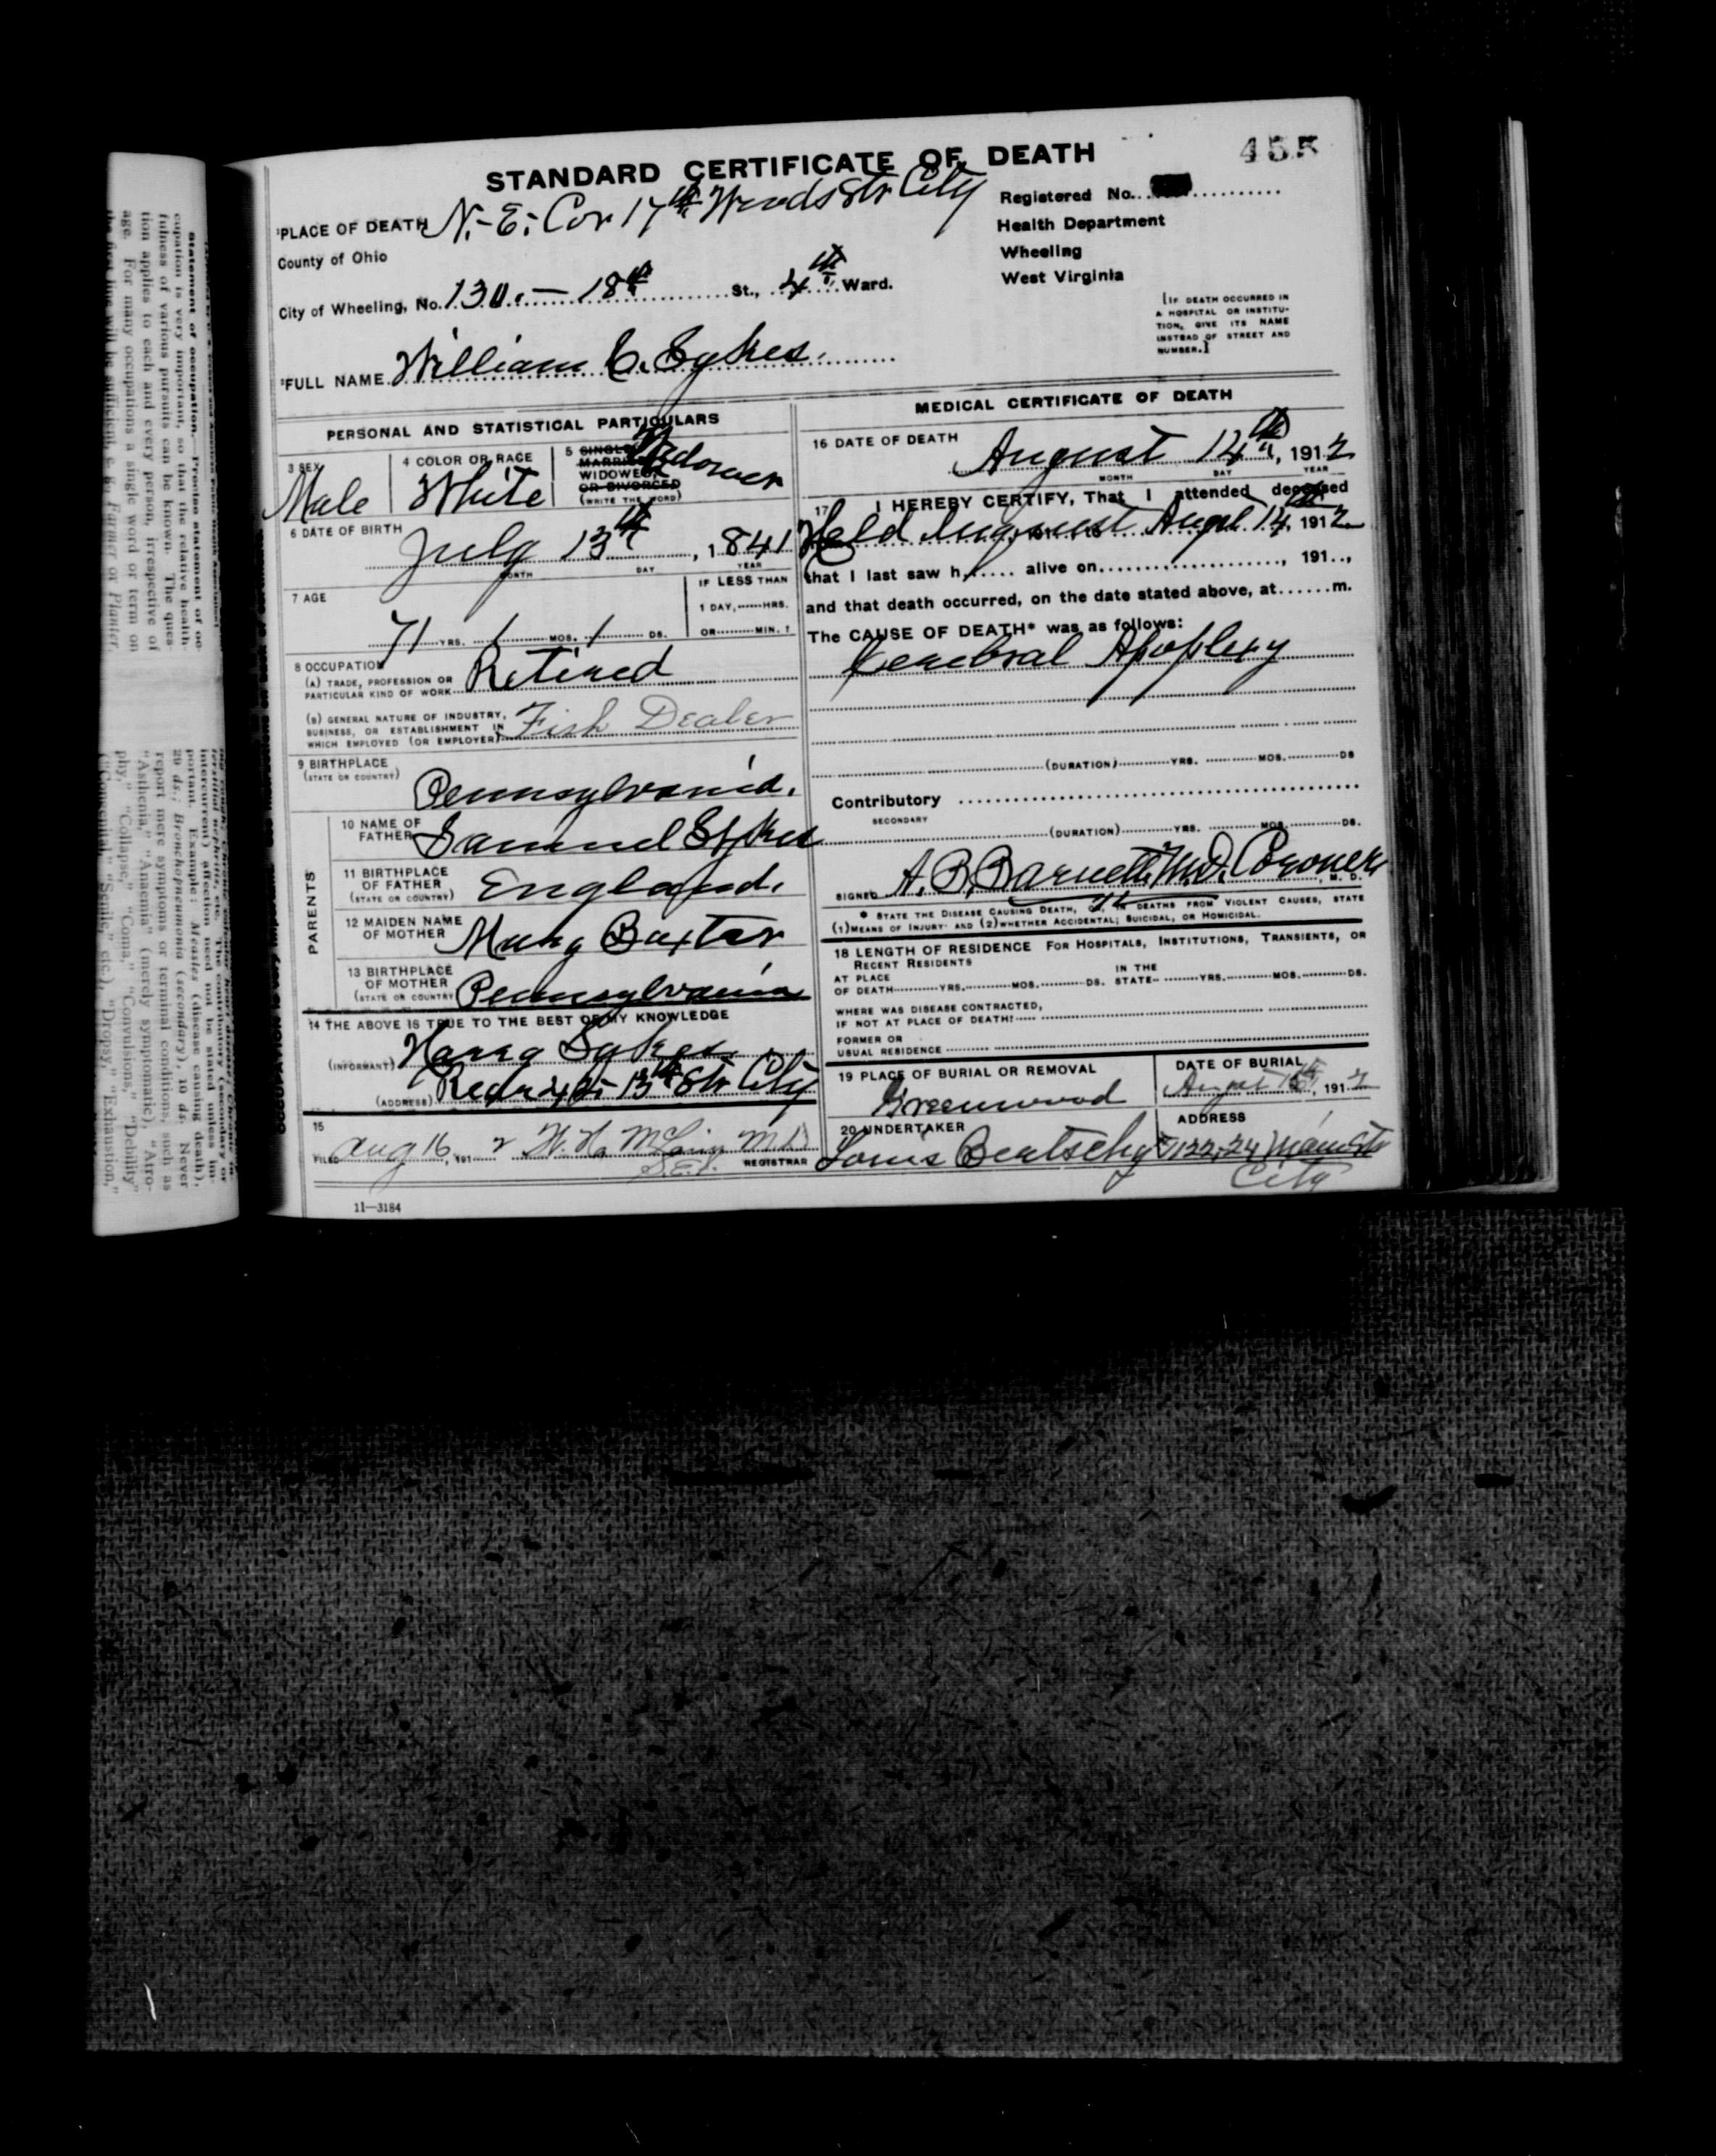 455
STANDARD CERTIFICATE OF DEATH
Registered No.
¹PLACE OF DEATH N.-E. Cor 17th Woods Str City
Health Department
County of Ohio
Wheeling
City of Wheeling, No. 130. — 18th St., 4th Ward.
West Virginia
[IF DEATH OCCURRED IN
A HOSPITAL OR INSTITU-
TION, GIVE ITS NAME
INSTEAD OF STREET AND
NUMBER.]
²FULL NAME William C. Sykes.
PERSONAL AND STATISTICAL PARTICULARS
3 SEX
Male
4 COLOR OR RACE
White
5 SINGLE
MARRIED
WIDOWED
OR DIVORCED
(WRITE THE WORD)
Widower
6 DATE OF BIRTH
July 13th, 1841
MONTH DAY YEAR
7 AGE
71 YRS. 1 MOS. 1 DS.
IF LESS THAN
1 DAY, HRS.
OR MIN. ?
8 OCCUPATION
(A) TRADE, PROFESSION OR
PARTICULAR KIND OF WORK Retired
(B) GENERAL NATURE OF INDUSTRY,
BUSINESS, OR ESTABLISHMENT IN
WHICH EMPLOYED (OR EMPLOYER) Fish Dealer
9 BIRTHPLACE
(STATE OR COUNTRY)
Pennsylvania.
PARENTS
10 NAME OF
FATHER Samuel Sykes
11 BIRTHPLACE
OF FATHER
(STATE OR COUNTRY) England.
12 MAIDEN NAME
OF MOTHER Mary Baxter
13 BIRTHPLACE
OF MOTHER
(STATE OR COUNTRY) Pennsylvania
14 THE ABOVE IS TRUE TO THE BEST OF MY KNOWLEDGE
(INFORMANT) Harry Sykes
(ADDRESS) 13th Str City
15
FILED Aug 16, 1912 REGISTRAR
11—3184
MEDICAL CERTIFICATE OF DEATH
16 DATE OF DEATH
August 14th, 1912
MONTH DAY YEAR
17 I HEREBY CERTIFY, That I attended deceased
Held Inquest Augt. 14th, 1912
that I last saw h alive on, 191..,
and that death occurred, on the date stated above, at......m.
The CAUSE OF DEATH* was as follows:
Cerebral Apoplexy
(DURATION) YRS. MOS. DS
Contributory
SECONDARY
(DURATION) YRS. MOS. DS.
SIGNED A. B. Barnett M.D. Coroner M. D.
* STATE THE DISEASE CAUSING DEATH, OR, IN DEATHS FROM VIOLENT CAUSES, STATE
(1) MEANS OF INJURY AND (2) WHETHER ACCIDENTAL; SUICIDAL, OR HOMICIDAL.
18 LENGTH OF RESIDENCE FOR HOSPITALS, INSTITUTIONS, TRANSIENTS, OR
RECENT RESIDENTS
AT PLACE
OF DEATH YRS. MOS. DS.
IN THE
STATE YRS. MOS. DS.
WHERE WAS DISEASE CONTRACTED,
IF NOT AT PLACE OF DEATH?
FORMER OR
USUAL RESIDENCE
19 PLACE OF BURIAL OR REMOVAL
Greenwood
DATE OF BURIAL
August 16th, 1912
20 UNDERTAKER
Louis Bertschy
ADDRESS
Main Str
City